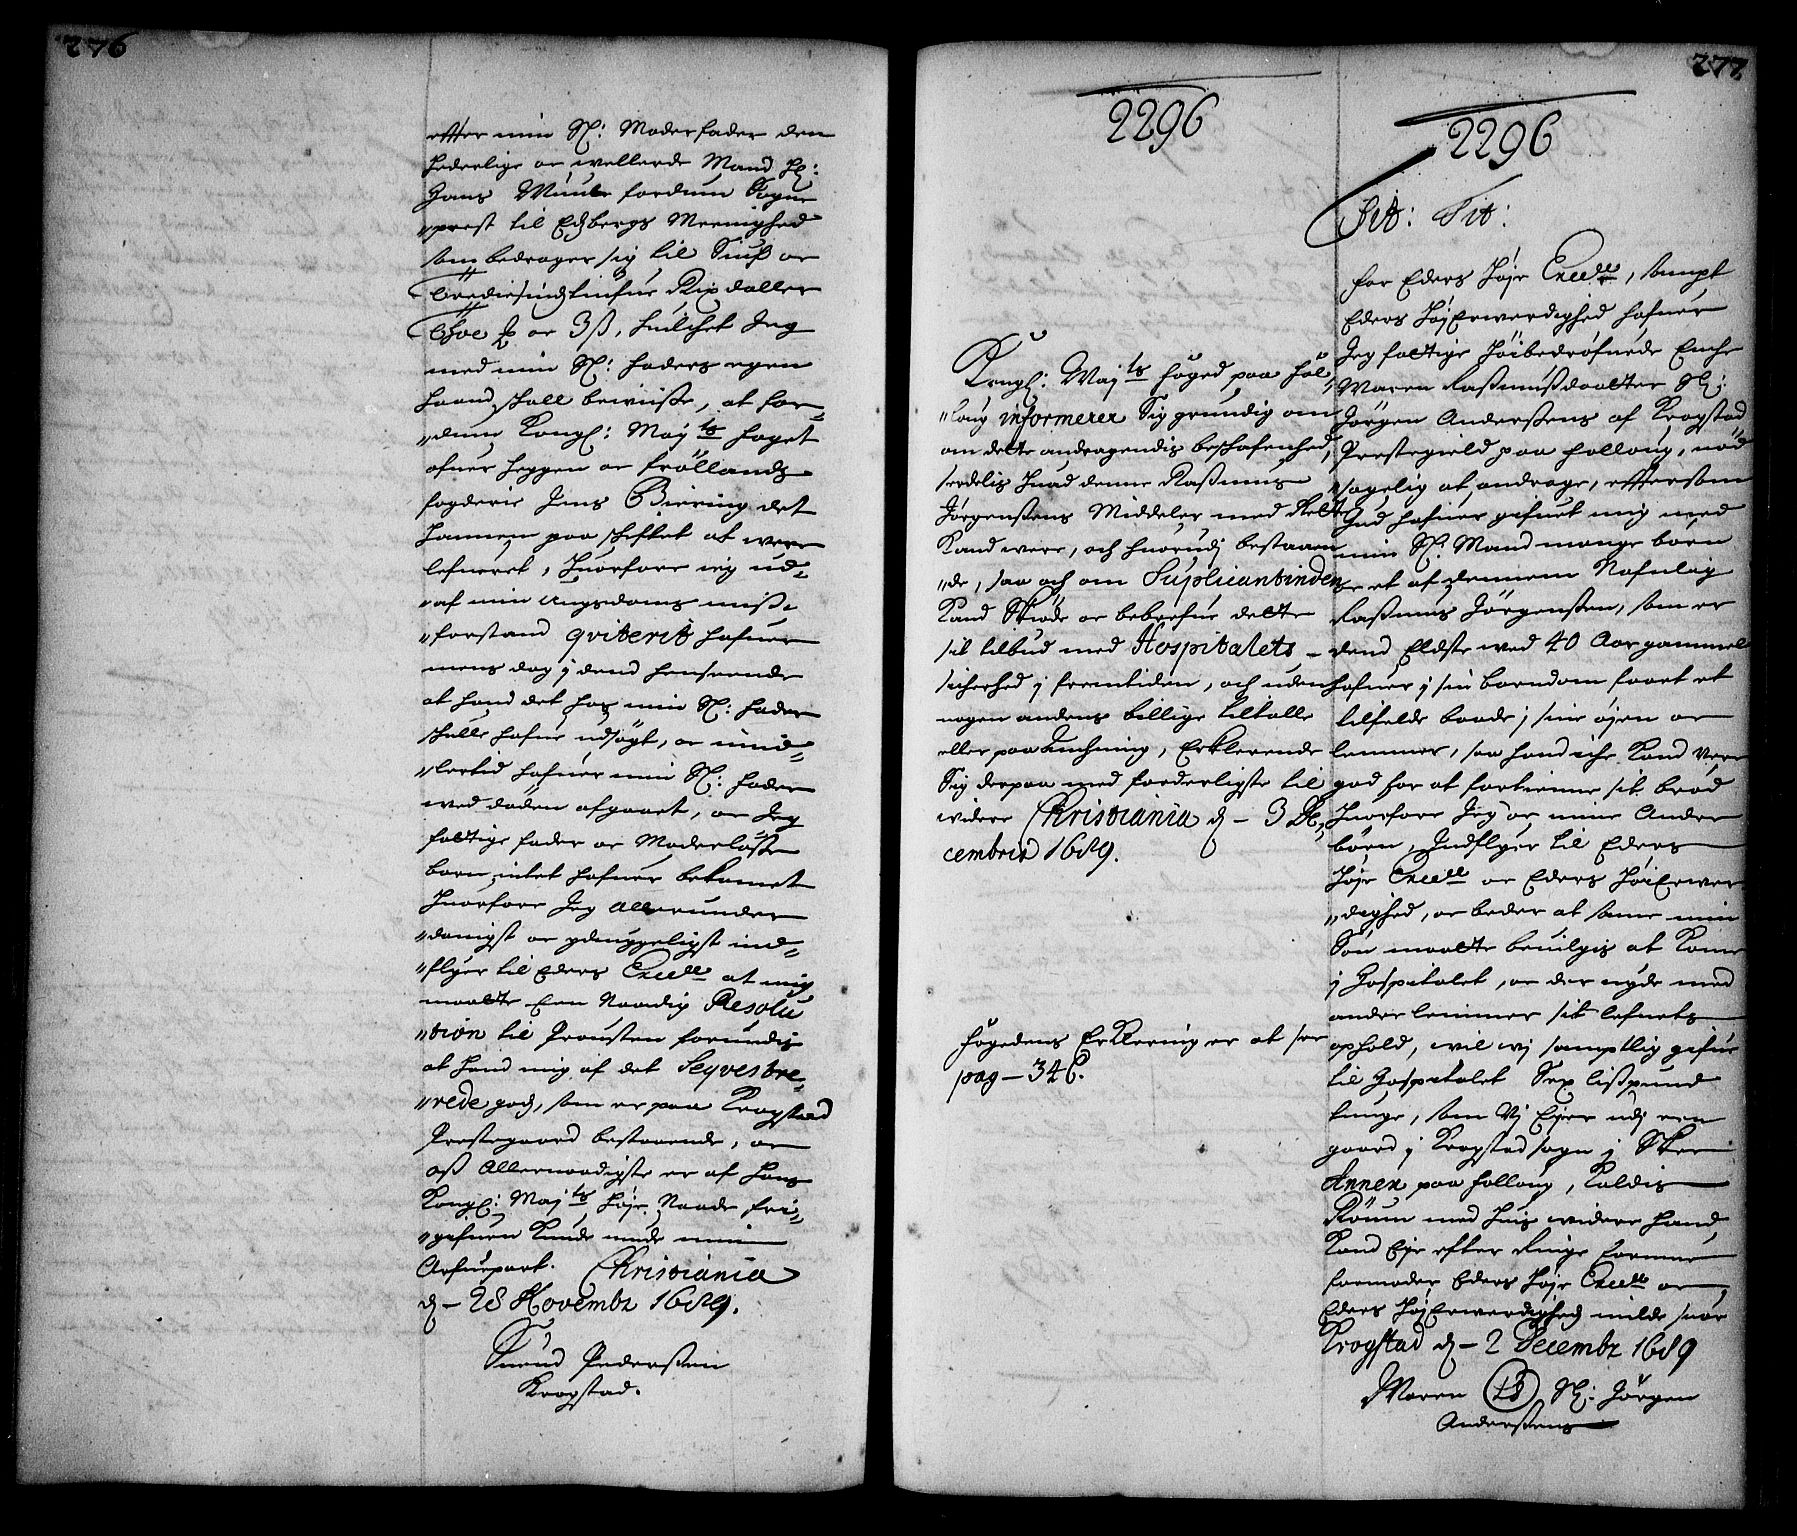 276
effter min Sl: Moderfader den
Hederlige oc wellerde Mand Hr:
Hans Muule fordum Sogne
„prest til Edsbergs Meenighed
som bedrager sig til Siuf oc
trediesindstiufue Rixdaller
thoe ȸ oc 3 ß, huilchet Jeg
med min Sl: Faders egen
haand skall bewiisse, at for„
„dum Kongl: Maytz foget
ofuer Heggen oc Fröllands
fogderie Jens Biering det
hannem paa skiftet at were
lefueret, huorfore ieg ud„
„af min Ungdoms miss„
„forstand qviterit hafuer
mens dog j dend henseende
at hand det hos min Sl: Fader
skulle hafue udsøgt, oc imid„
„lertid hafuer min Sl: Fader
wed døden afgaaet, oc Jeg
fattige fader oc Moderløsse
barn intet hafuer bekomet
huorfore Jeg allerunder
„danigst oc ydmygeligst ind„
„flyer til Eders Excell: at mig
maatte een Naadig Resolu
„tion til Prousten forundis
at hand mig af det Seqvestre„
„rede gods, som er paa Krogstad
Prestegaard bestaaende, oc
oss Allernaadigste er af Hans
Kongl: Maytz høje Naade fri„
„gifuen kunde nyde min
Arfuepart. Christiania
d – 28 Novembr 1689.
Knud Pedersen
Krogstad.
277
2296
Kongl: Maytz Foged paa Fol„
„loug informerer sig grundig om
om dette andragendis beskafenhed,
serdelis huad denne Rassmus
Jørgenssens Middeler med Rette
kand were, och huorudj bestaaen
„de, saa och om Suplicantinden
kand Skiøde oc bebrefue dette
sit tilbud med Hospitalets
sicherhed j fremtiden, och uden
nogen andens billige tiltalle
eller paaanchning, Erklerende
sig derpaa med forderligste til
widere Christiania d – 3 De„
cembris 1689.
Fogedens Erklering er at see
pag – 346.
2296
Tit: Tit:
For Eders høje Excell:, sampt
Eders HøjErwerdighed hafuer
Jeg fattige høibedrøfuede Enche
Maren Rassmussdaatter Sl:
Jörgen Anderssens af Krogstad
Prestegield paa Folloug, nød
„sagelig at andrage, effter som
Gud hafuer gifuet mig med
min Sl: Mand mange børn
oc et af dennem Nafnlig
Rassmus Jørgenssen, som er
dend Eldste wed 40 Aar gammel
hafuer j sin barndom faaet et
tilfelde baade j sine øjen oc
lemmer, saa hand iche kand vere
god for at fortienne sit brød
huorfore Jeg oc mine Andre
børn, Indflyer til Eders
høje Excell: oc Eders HøiErwer
„dighed, oc beder at samme min
Søn maatte bevilgis at kome
j Hospitalet, oc der nyde med
andre lemmer sit lefnets
ophold, wil wj samptlig gifue
til Hospitalet Sex lisspund
tunge, som Vj Ejer udj een
gaard j Krogstad sogn j Skee
Annex paa Folloug, kaldis
Roum med huis widere hand
kand Eje efter Ringe formue
formoder Eders høje Excell: oc
Eders HøjErwerdighed milde suar
Krogstad d – 2 Decembr 1689
Maren LS Sl: Jörgen
Anderssens